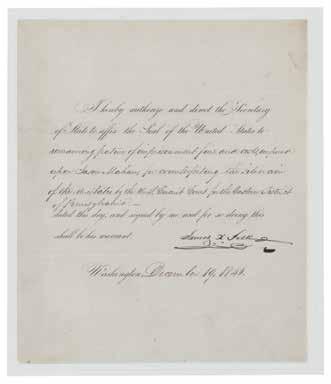 I hereby authorize and direct the Secretary
of State to affix the Seal of the United States to
remaining portion of imprisonment fine and costs, imposed
upon Mahan, for counterfeiting the coin
of the U. States by the Circuit Court for the Eastern District
of Pennsylvania —
dated this day, and signed by me and for so doing this
shall be his warrant.
James K. Polk
Washington, December 19, 184